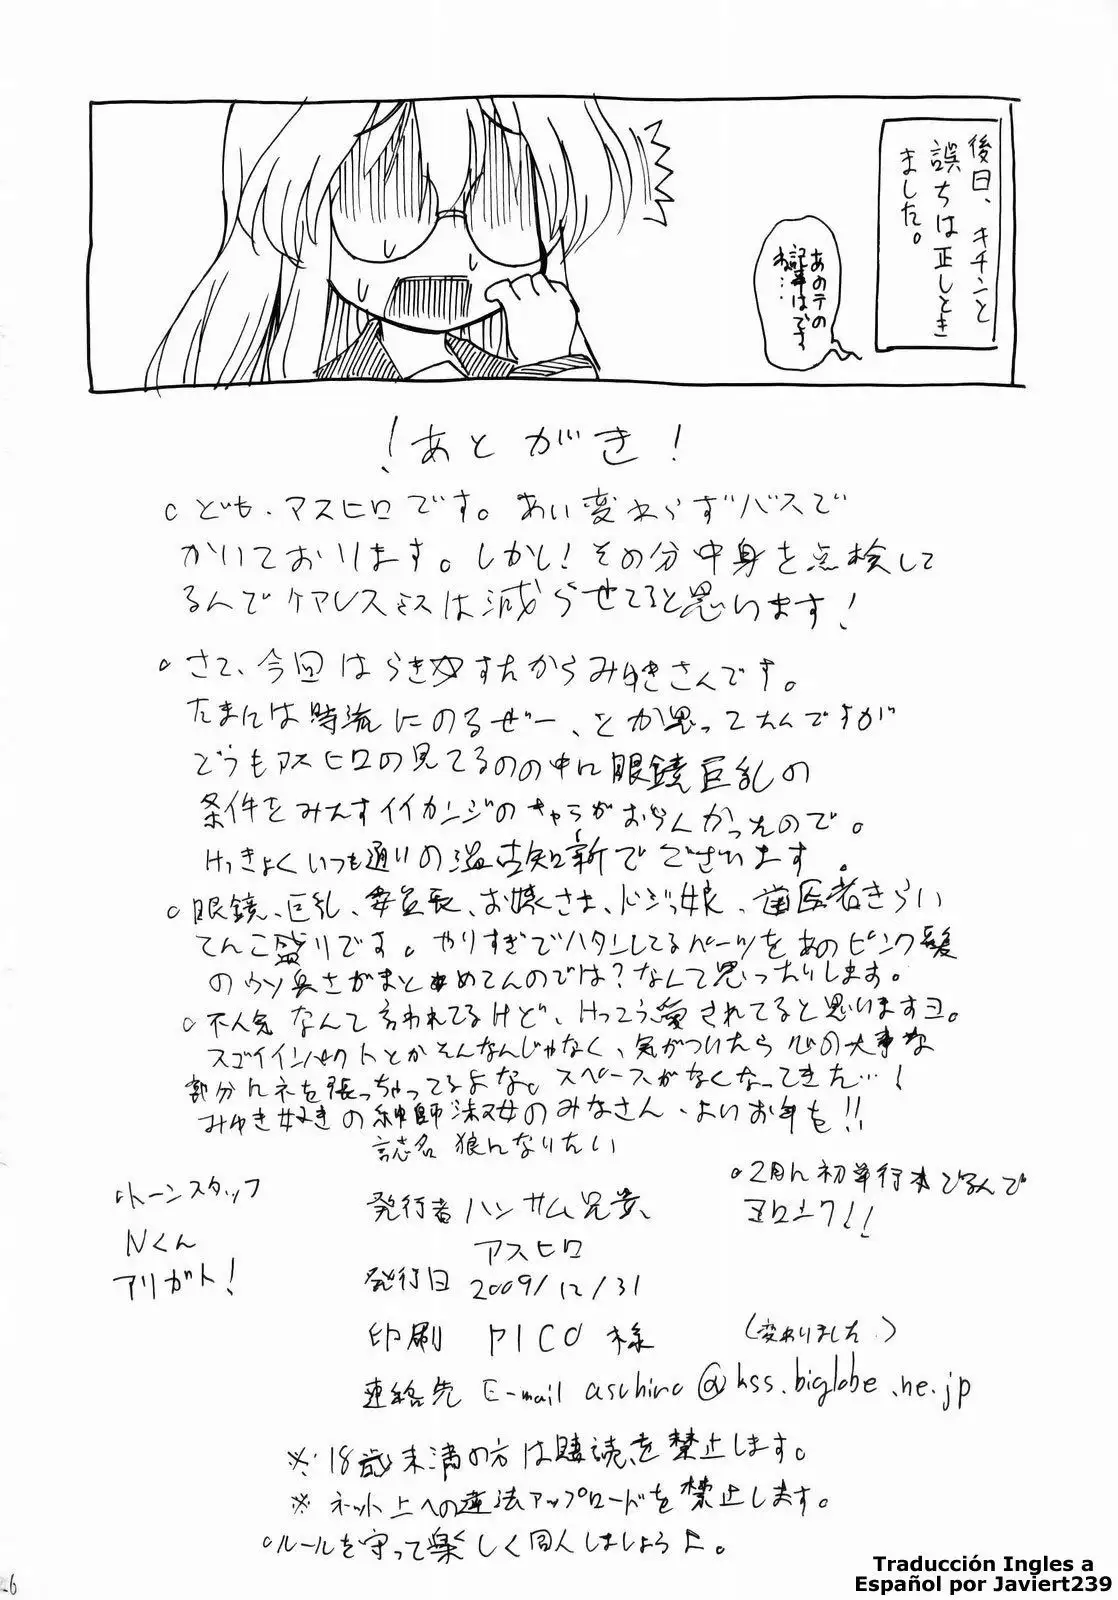 後日、キチンと
誤ちは正しとき
ました。
あのテの
記事はです
ね…
！あとがき！
○ども、アスヒロです。あい変わらずバスで
かいております。しかし！その分中身を点検して
るんでケアレスミスは減らせてると思います！
○さて、今回はらき☆すたからみゆきさんです。
たまには時流にのるぜー、とか思ってたんですが
どうもアスヒロの見てるのの中に眼鏡巨乳の
条件をみたすイイカンジのキャラがおらんかったので。
けっきょくいつも通りの温古知新でございます。
○眼鏡、巨乳、委員長、お嬢さま、ドジっ娘、歯医者きらい
てんこ盛りです。やりすぎでハタンしてるパーツをあのピンク髪
のウソ臭さがまとめてんのでは？なんて思ったりします。
○不人気なんて言われてるけど、けっこう愛されてると思いますヨ。
スゴイインパクトとかそんなんじゃなく、気がついたら心の大事な
部分に根を張っちゃってるよな。スペースがなくなってきた…！
みゆき好きの紳師淑女のみなさん、よいお年を!!
誌名 狼になりたい
○トーンスタッフ
Nくん
アリガト！
発行者 ハンサム兄貴、
アスヒロ
○2月に初単行本でるんで
ヨロシク!!
発行日 2009/12/31
印刷 PICO 様
(変わりました)
連絡先 E-mail asuhiro@kss.biglobe.ne.jp
※18歳未満の方は購読を禁止します。
※ネット上への違法アップロードを禁止します。
○ルールを守って楽しく同人しましょうよ。
26
Traducción Ingles a
Español por Javiert239